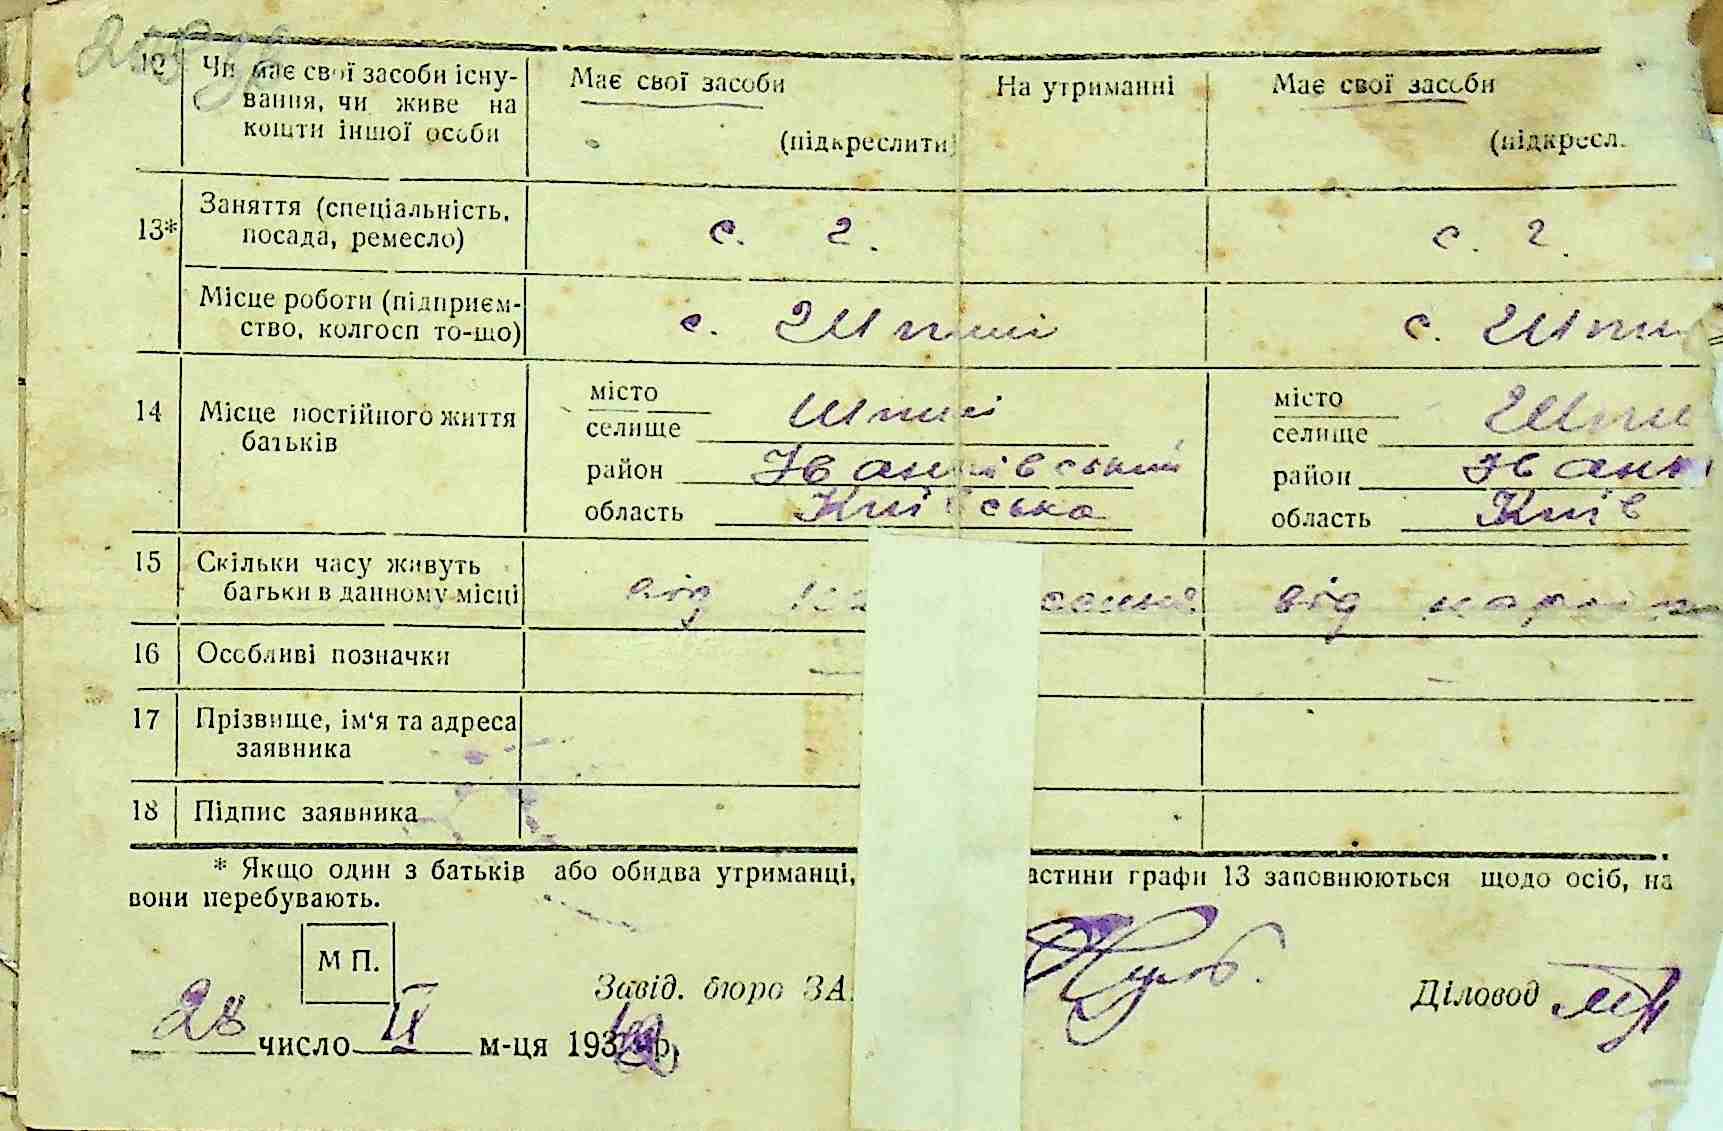 12 Чи має свої засоби існу- Має свої засоби На утриманні Має свої засоби
вання, чи живе на
кошти іншої особи (підкреслити) (підкресл.
Заняття (спеціальність,
13* посада, ремесло) с. г. с. г.
Місце роботи (підприєм-
ство, колгосп то-що) с. Шпилі с. Шпилі
місто місто
14 Місце постійного життя Шпилі
батьків селище селище
район Іванківський район Іванк
область Київська область Київ
15 Скільки часу живуть
батьки в данному місці від від народж
16 Особливі позначки — —
17 Прізвище, ім'я та адреса
заявника
18 Підпис заявника
* Якщо один з батьків або обидва утриманці, астини графи 13 заповнюються щодо осіб, на
вони перебувають.
М П.
Завід. бюро ЗА Діловод
28 число ІХ м-ця 193 р.